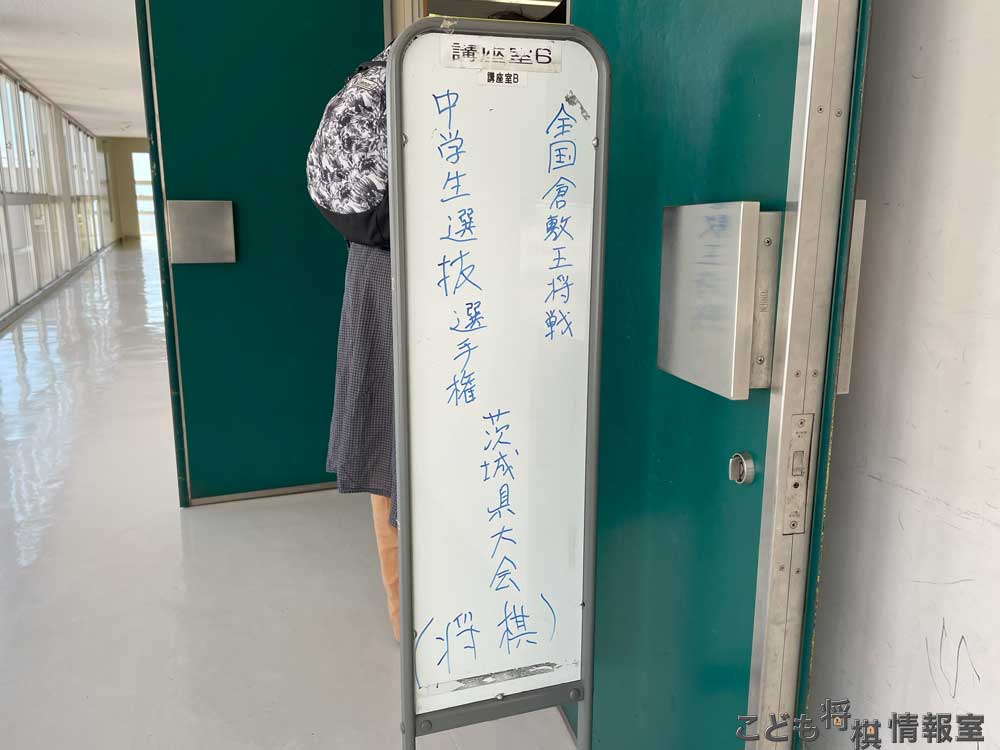 講座室B
講座室B
全国倉敷王将戦
中学生選抜選手権
茨城県大会
(将棋)
こども将棋情報室